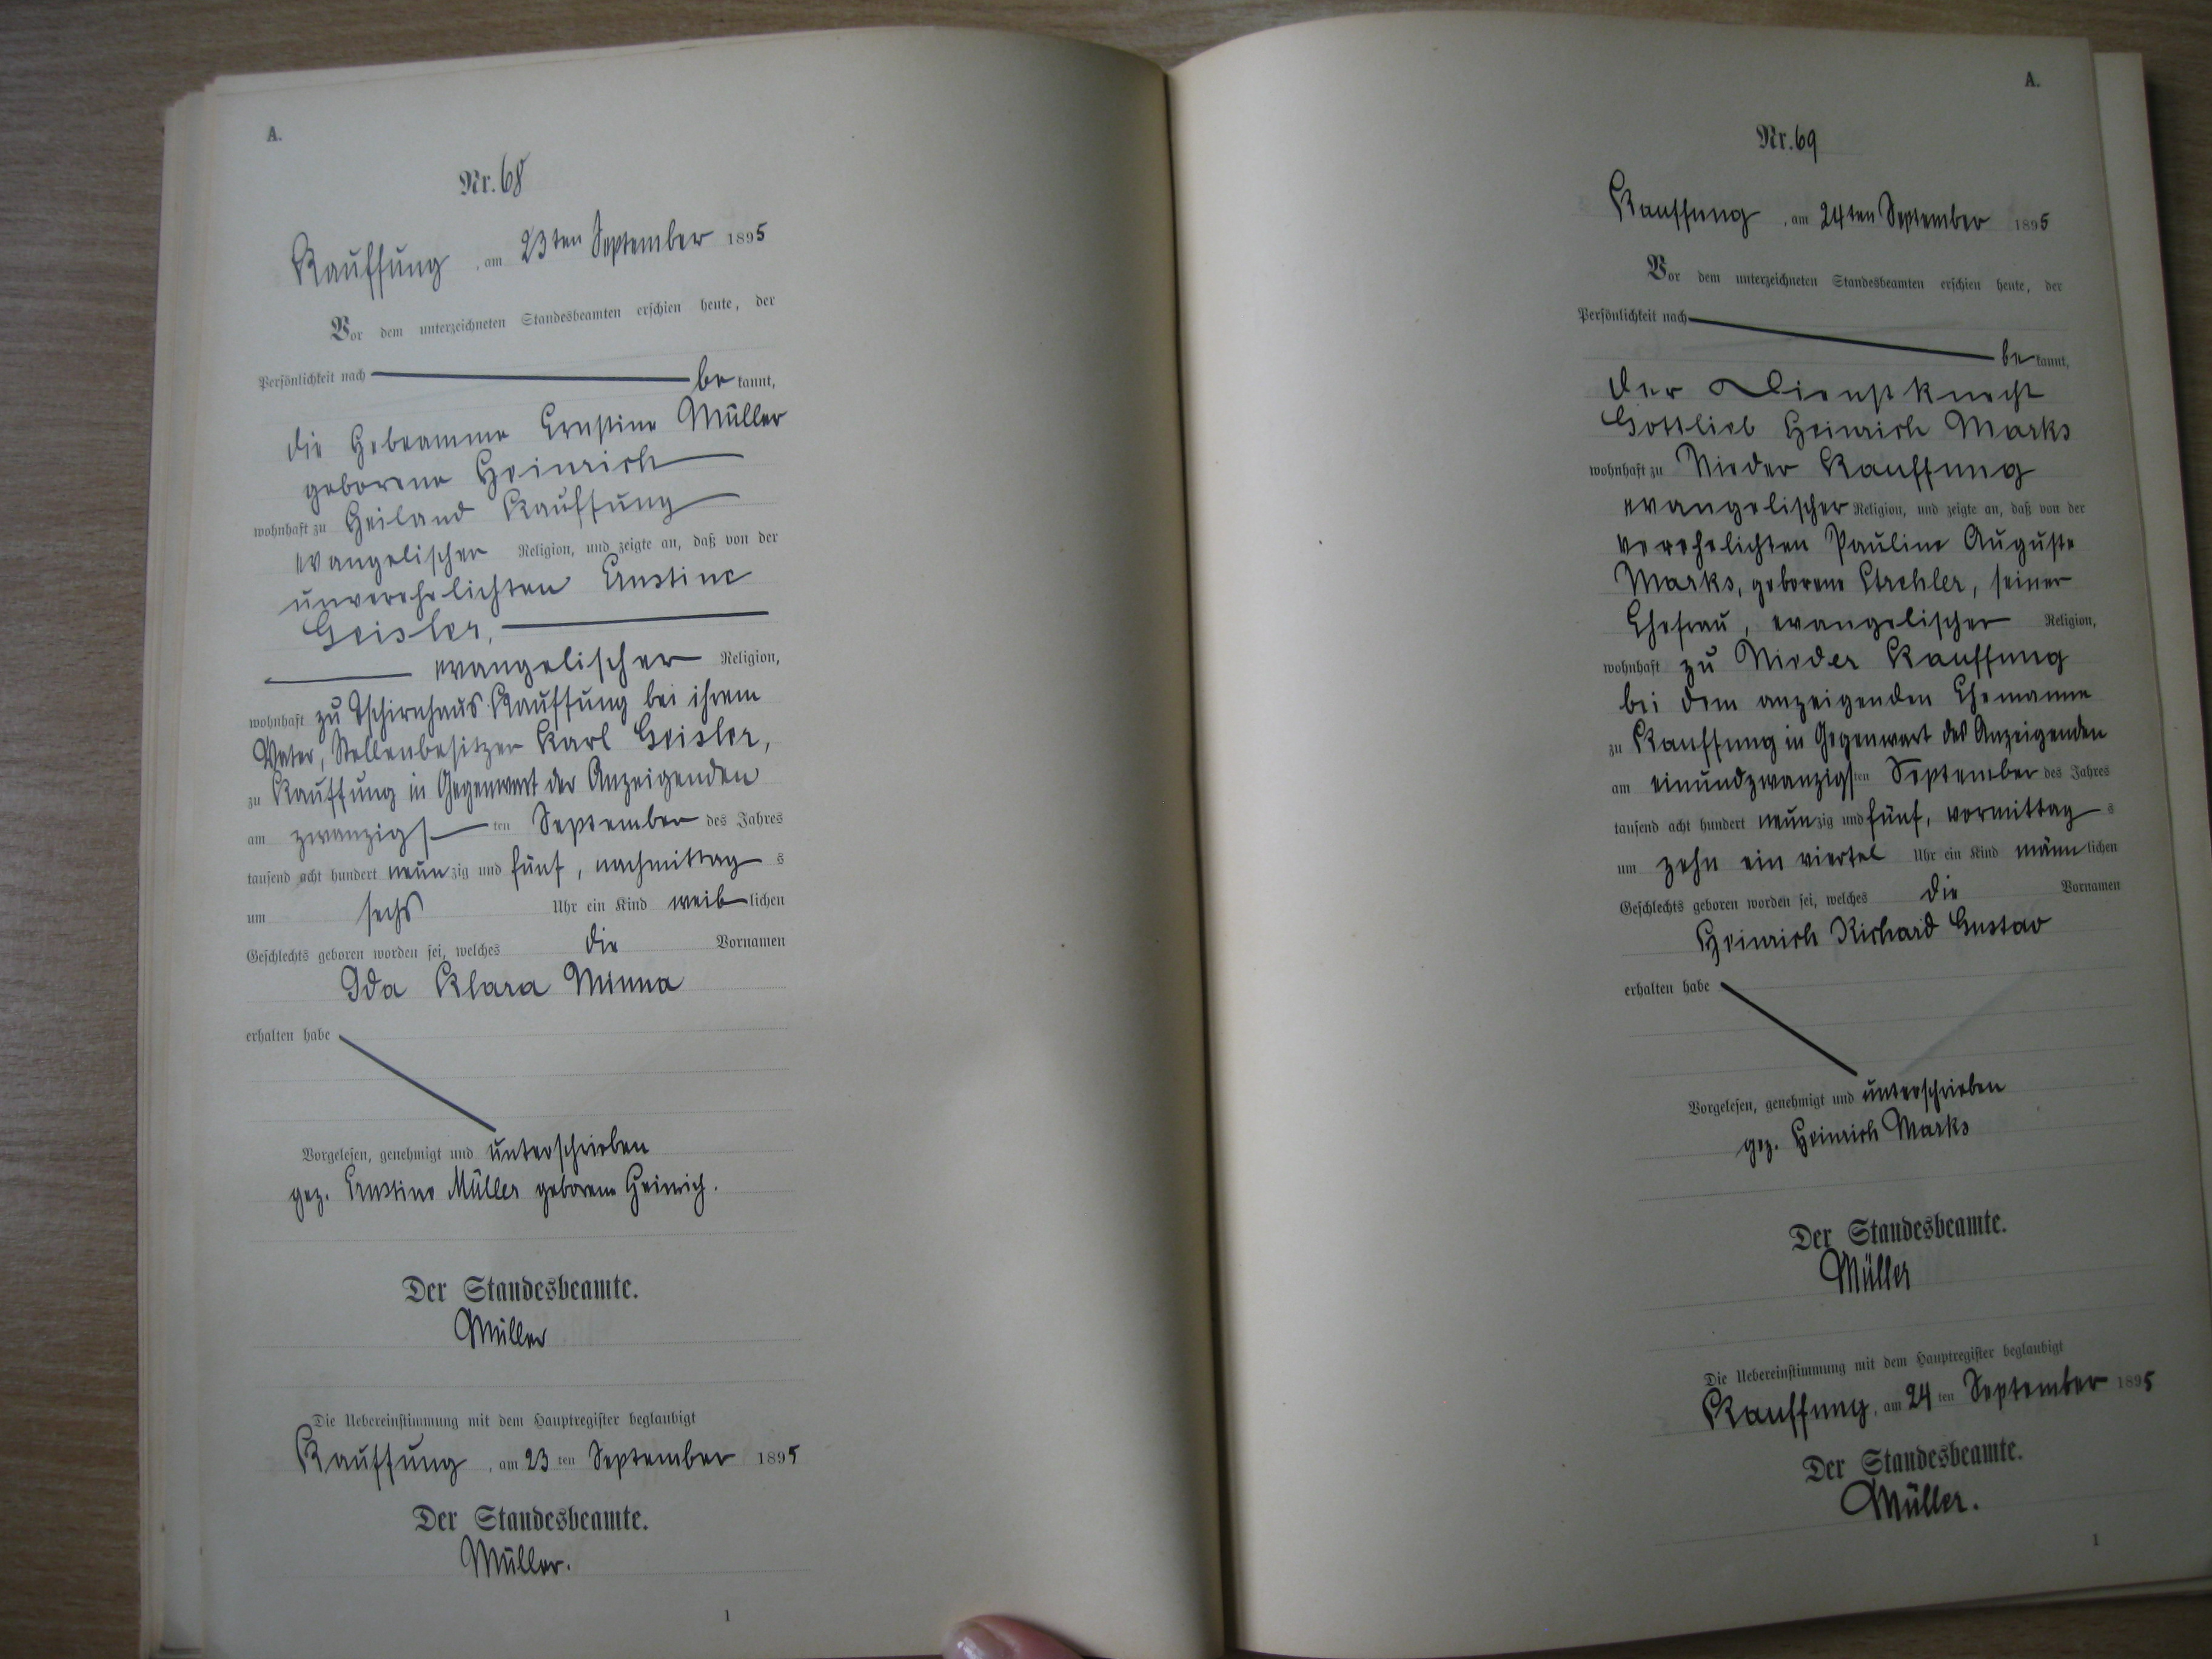 A.
Nr. 68
Kauffung, am 23ten September 1895
Vor dem unterzeichneten Standesbeamten erschien heute, der
Persönlichkeit nach
be kannt,
die Hebeamme Ernstine Müller
geborene Heinrich
wohnhaft zu Heiland Kauffung
evangelischer Religion, und zeigte an, daß von der
unverehelichten Ernstine
Geisler,
evangelischer Religion,
wohnhaft zu Tschirnhaus Kauffung bei ihrem
Vater, Stellenbesitzer Karl Geisler,
zu Kauffung in Gegenwart der Anzeigenden
am zwanzigs ten September des Jahres
tausend acht hundert neun zig und fünf, nachmittag s
um sechs Uhr ein Kind weib lichen
Geschlechts geboren worden sei, welches die Vornamen
Ida Klara Minna
erhalten habe
Vorgelesen, genehmigt und unterschrieben
gez. Ernstine Müller geborene Heinrich.
Der Standesbeamte.
Müller
Die Uebereinstimmung mit dem Hauptregister beglaubigt
Kauffung, am 23 ten September 1895
Der Standesbeamte.
Müller.
1
A.
Nr. 69
Kauffung, am 24ten September 1895
Vor dem unterzeichneten Standesbeamten erschien heute, der
Persönlichkeit nach
be kannt,
der Dienstknecht
Gottlieb Heinrich Marks
wohnhaft zu Nieder Kauffung
evangelischer Religion, und zeigte an, daß von der
verehelichten Pauline Auguste
Marks, geborene Strehler, seiner
Ehefrau, evangelischer Religion,
wohnhaft zu Nieder Kauffung
bei dem anzeigenden Ehemanne
zu Kauffung in Gegenwart des Anzeigenden
am einundzwanzigs ten September des Jahres
tausend acht hundert neun zig und fünf, vormittag s
um zehn ein viertel Uhr ein Kind männ lichen
Geschlechts geboren worden sei, welches die Vornamen
Heinrich Richard Gustav
erhalten habe
Vorgelesen, genehmigt und unterschrieben
gez. Heinrich Marks
Der Standesbeamte.
Müller
Die Uebereinstimmung mit dem Hauptregister beglaubigt
Kauffung, am 24 ten September 1895
Der Standesbeamte.
Müller.
1